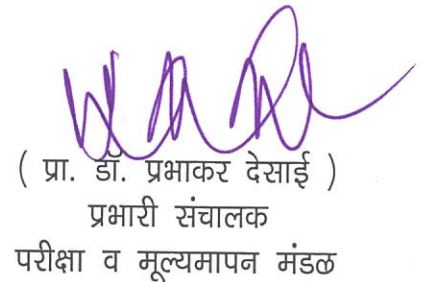 ( प्रा. डॉ. प्रभाकर देसाई )
प्रभारी संचालक
परीक्षा व मूल्यमापन मंडळ